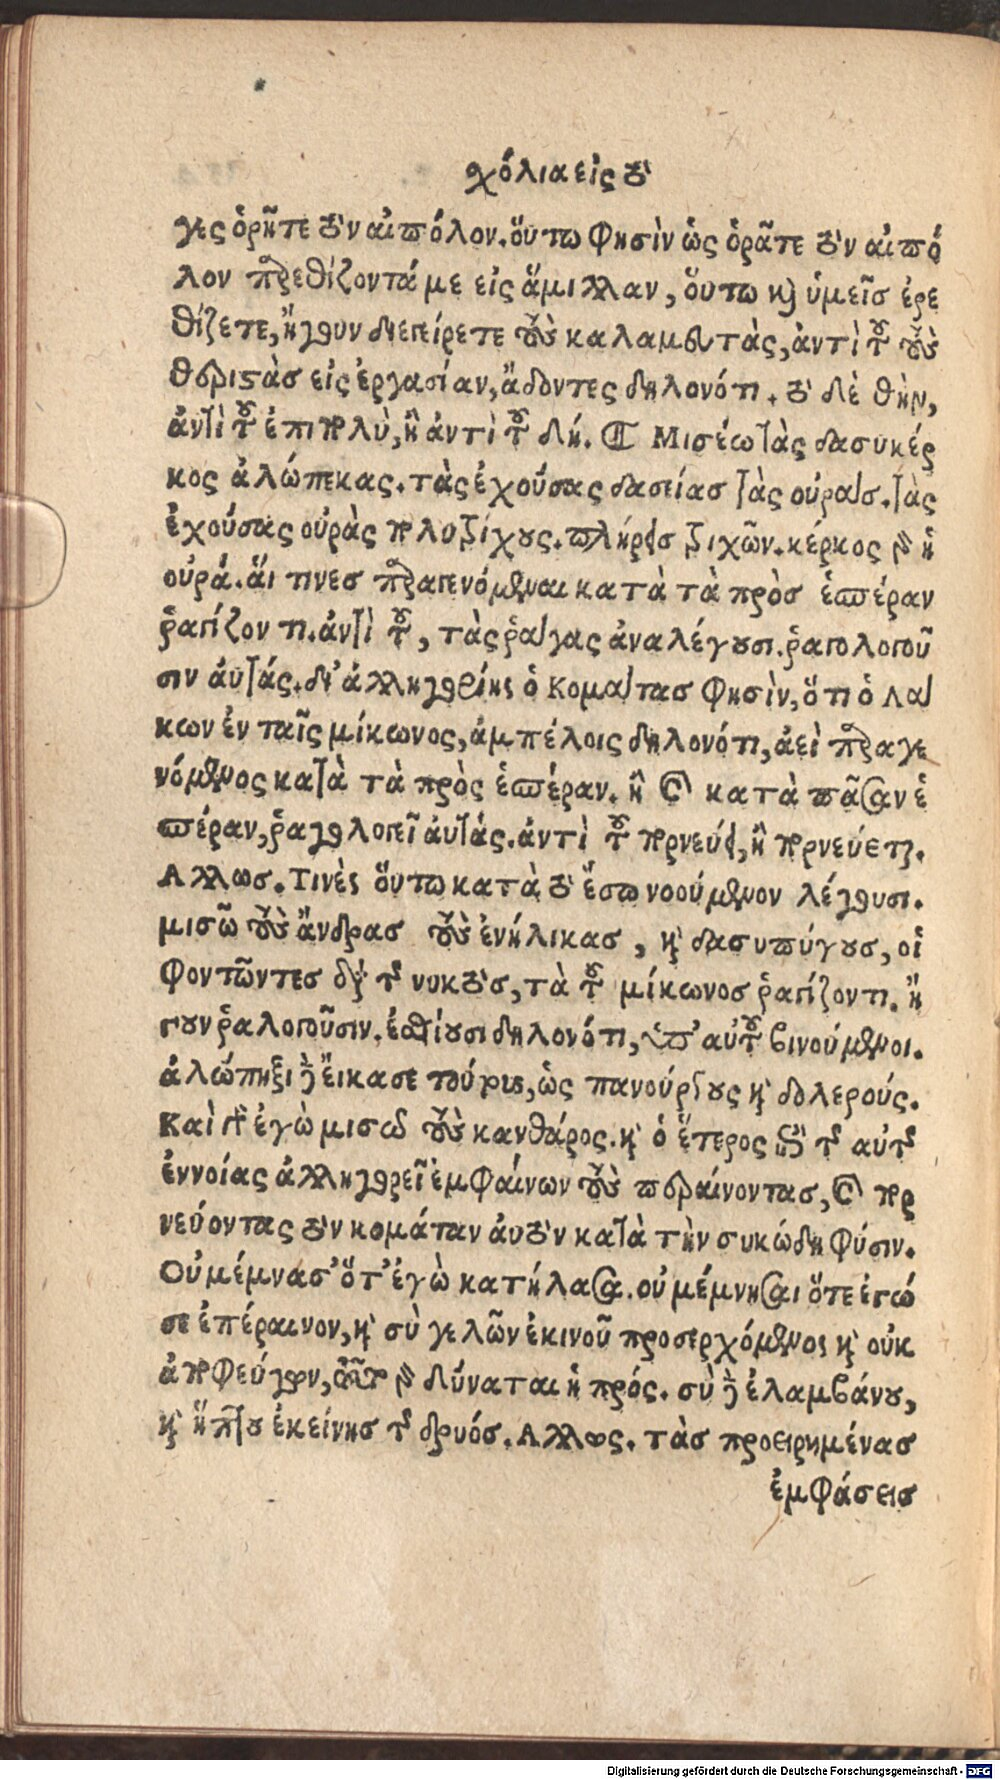 σχόλια εἰς τὸ
γες ὁρῆτε τὸν αἰπόλον. οὕτω φησὶν ὡς ὁρᾶτε τὸν αἰπό
λον παρεθίζοντά με εἰς ἅμιλλαν, οὕτω καὶ ὑμεῖς ἐρε
θίζετε, ἤγουν διεγείρετε τοὺς καλαμευτὰς, ἀντὶ τοῦ τοὺς
θεριστὰς εἰς ἐργασίαν, ἄδοντες δηλονότι. τὸ δὲ θὴν,
ἀντὶ τοῦ ἐπιπολὺ, ἢ ἀντὶ τοῦ δή. ¶ Μισέω τὰς δασυκέρ
κος ἀλώπεκας. τὰς ἐχούσας δασείας τὰς οὐράς. τὰς
ἐχούσας οὐρὰς πολυστίχους. πλήρεις στιχῶν. κέρκος γὰρ ἡ
οὐρά. αἵ τινες παραγενόμεναι κατὰ τὰ πρὸς ἑσπέραν
ῥαγίζοντι. ἀντὶ τοῦ, τὰς ῥάγας ἀναλέγουσι. ῥαγολογοῦ
σιν αὐτάς. δι' ἀλληγορίης ὁ Κομάτας φησὶν, ὅτι ὁ Λά
κων ἐν ταῖς μίκωνος, ἀμπέλοις δηλονότι, ἀεὶ παραγε
νόμενος κατὰ τὰ πρὸς ἑσπέραν. ἢ καὶ κατὰ πᾶσαν ἑ
σπέραν, ῥαγολογεῖ αὐτάς. ἀντὶ τοῦ πορνεύει, ἢ πορνεύεται.
Αλλως. Τινὲς οὕτω κατὰ τὸ ἔσω νοούμενον λέγουσι.
μισῶ τοὺς ἄνδρας τοὺς ἐνήλικας, καὶ δασυπύγους, οἱ
φοιτῶντες διὰ τῆς νυκτὸς, τὰ τοῦ μίκωνος ῥαγίζοντι. ἤ
γουν ῥαλογοῦσιν. ἐσθίουσι δηλονότι, ὑπ' αὐτοῦ βινούμενοι.
ἀλώπηξι δὲ εἴκασε τούτους, ὡς πανούργους καὶ δολερούς.
Καὶ γὰρ ἐγὼ μισῶ τοὺς κανθάρος. καὶ ὁ ἕτερος ἐπὶ τῆς αὐτῆς
ἐννοίας ἀλληγορεῖ ἐμφαίνων τοὺς περαίνοντας, καὶ πορ
νεύοντας τὸν κομάταν αὐτὸν κατὰ τὴν συκώδη φύσιν.
Οὐ μέμνας' ὅτ' ἐγὼ κατήλασα. οὐ μέμνησαι ὅτε ἐγώ
σε ἐπέραινον, καὶ σὺ γελῶν ἐκινοῦ προσερχόμενος καὶ οὐκ
ἀποφεύγων, τοῦτο γὰρ δύναται ἡ πρός. σὺ δὲ ἐλαμβάνου,
καὶ ἥπτου ἐκείνης τῆς δρυός. Αλλως. τὰς προειρημένας
ἐμφάσεις
Digitalisierung gefördert durch die Deutsche Forschungsgemeinschaft - DFG